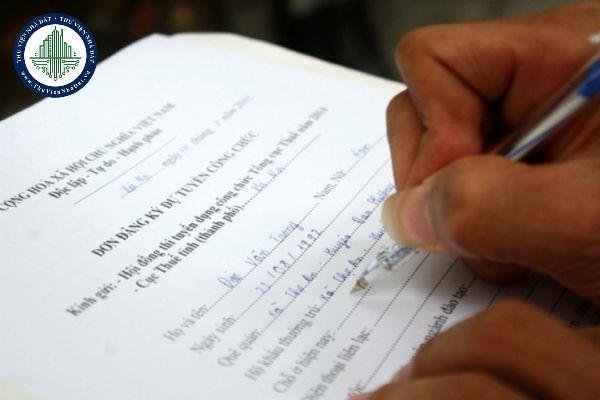 THƯ VIỆN NHÀ ĐẤT * THƯ VIỆN NHÀ ĐẤT
www.ThuVienNhaDat.vn
CỘNG HOA XÃ HỘI CHỦ NGHĨA VIỆT NAM
Độc lập - Tự do - Hạnh phúc
Hà Nội, ngày 14 tháng
ĐƠN ĐĂNG KÝ DỰ TUYỂN CÔNG CHỨC
Kính gửi: - Hội đồng thi tuyển dụng công chức Tổng cục Thuế năm 2014
- Cục Thuế tỉnh (thành phố)..... Hà Nội
Họ và tên: Văn Trường Nam, Nữ: Nam
Ngày sinh: 22/08/1992
Quê quán: Xã Huyện Đan Phượng
Hộ khẩu thường trú: Xã
Chỗ ở hiện nay:
Điện thoại liên lạc:
ngành đào tạo: